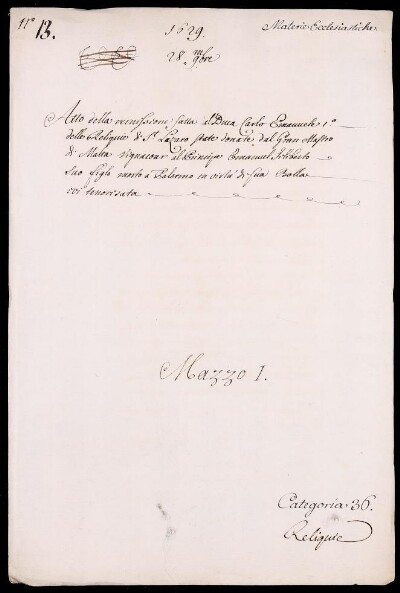 N° 13.
1629.
Materie Ecclesiastiche
28. 9bre
Atto della remissione fatta al Duca Carlo Emanuele 1°
delle Reliquie di S.t Lazaro state donate dal Gran Mastro
di Malta Vignacour al Principe Emanuel Filiberto
Suo figlio morto a Palermo in virtù di sua Bolla
ivi tenorizata
Mazzo I.
Categoria 36.
Reliquie